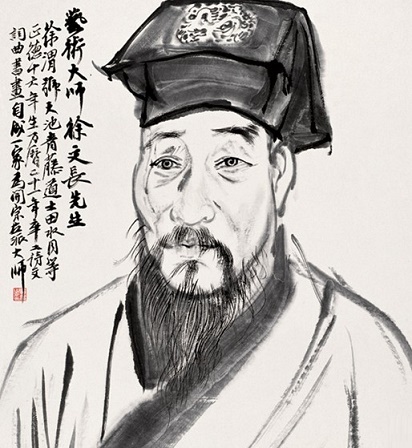 藝術大師徐文長先生
徐渭號天池青藤道士田水月等
正德十六年生万曆二十一年卒工詩文
詞曲書畫自成一家為開宗立派大師